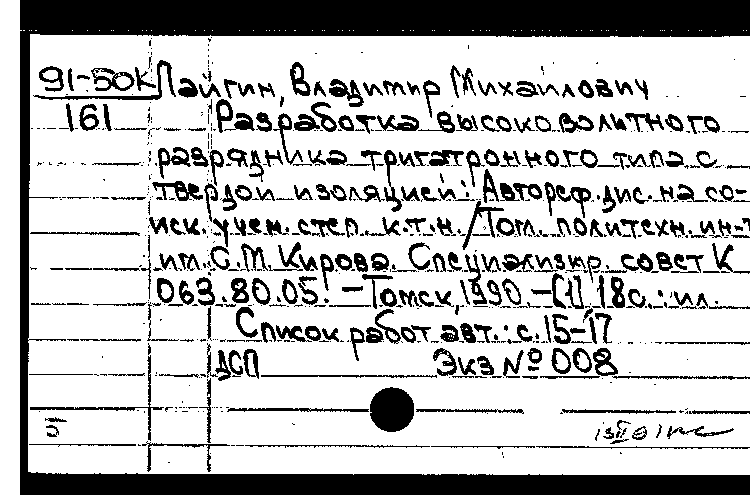 91-50К Лайгин, Владимир Михайлович
161 Разработка высоковольтного
разрядника тригатронного типа с
твердой изоляцией: Автореф. дис. на со-
иск. учен. степ. к.т.н. / Том. политехн. ин-т
им. С.М. Кирова. Специализир. совет К
063.80.05. – Томск, 1990. – [1], 18с.: ил.
Список работ авт.: с. 15-17
ДСП Экз № 008